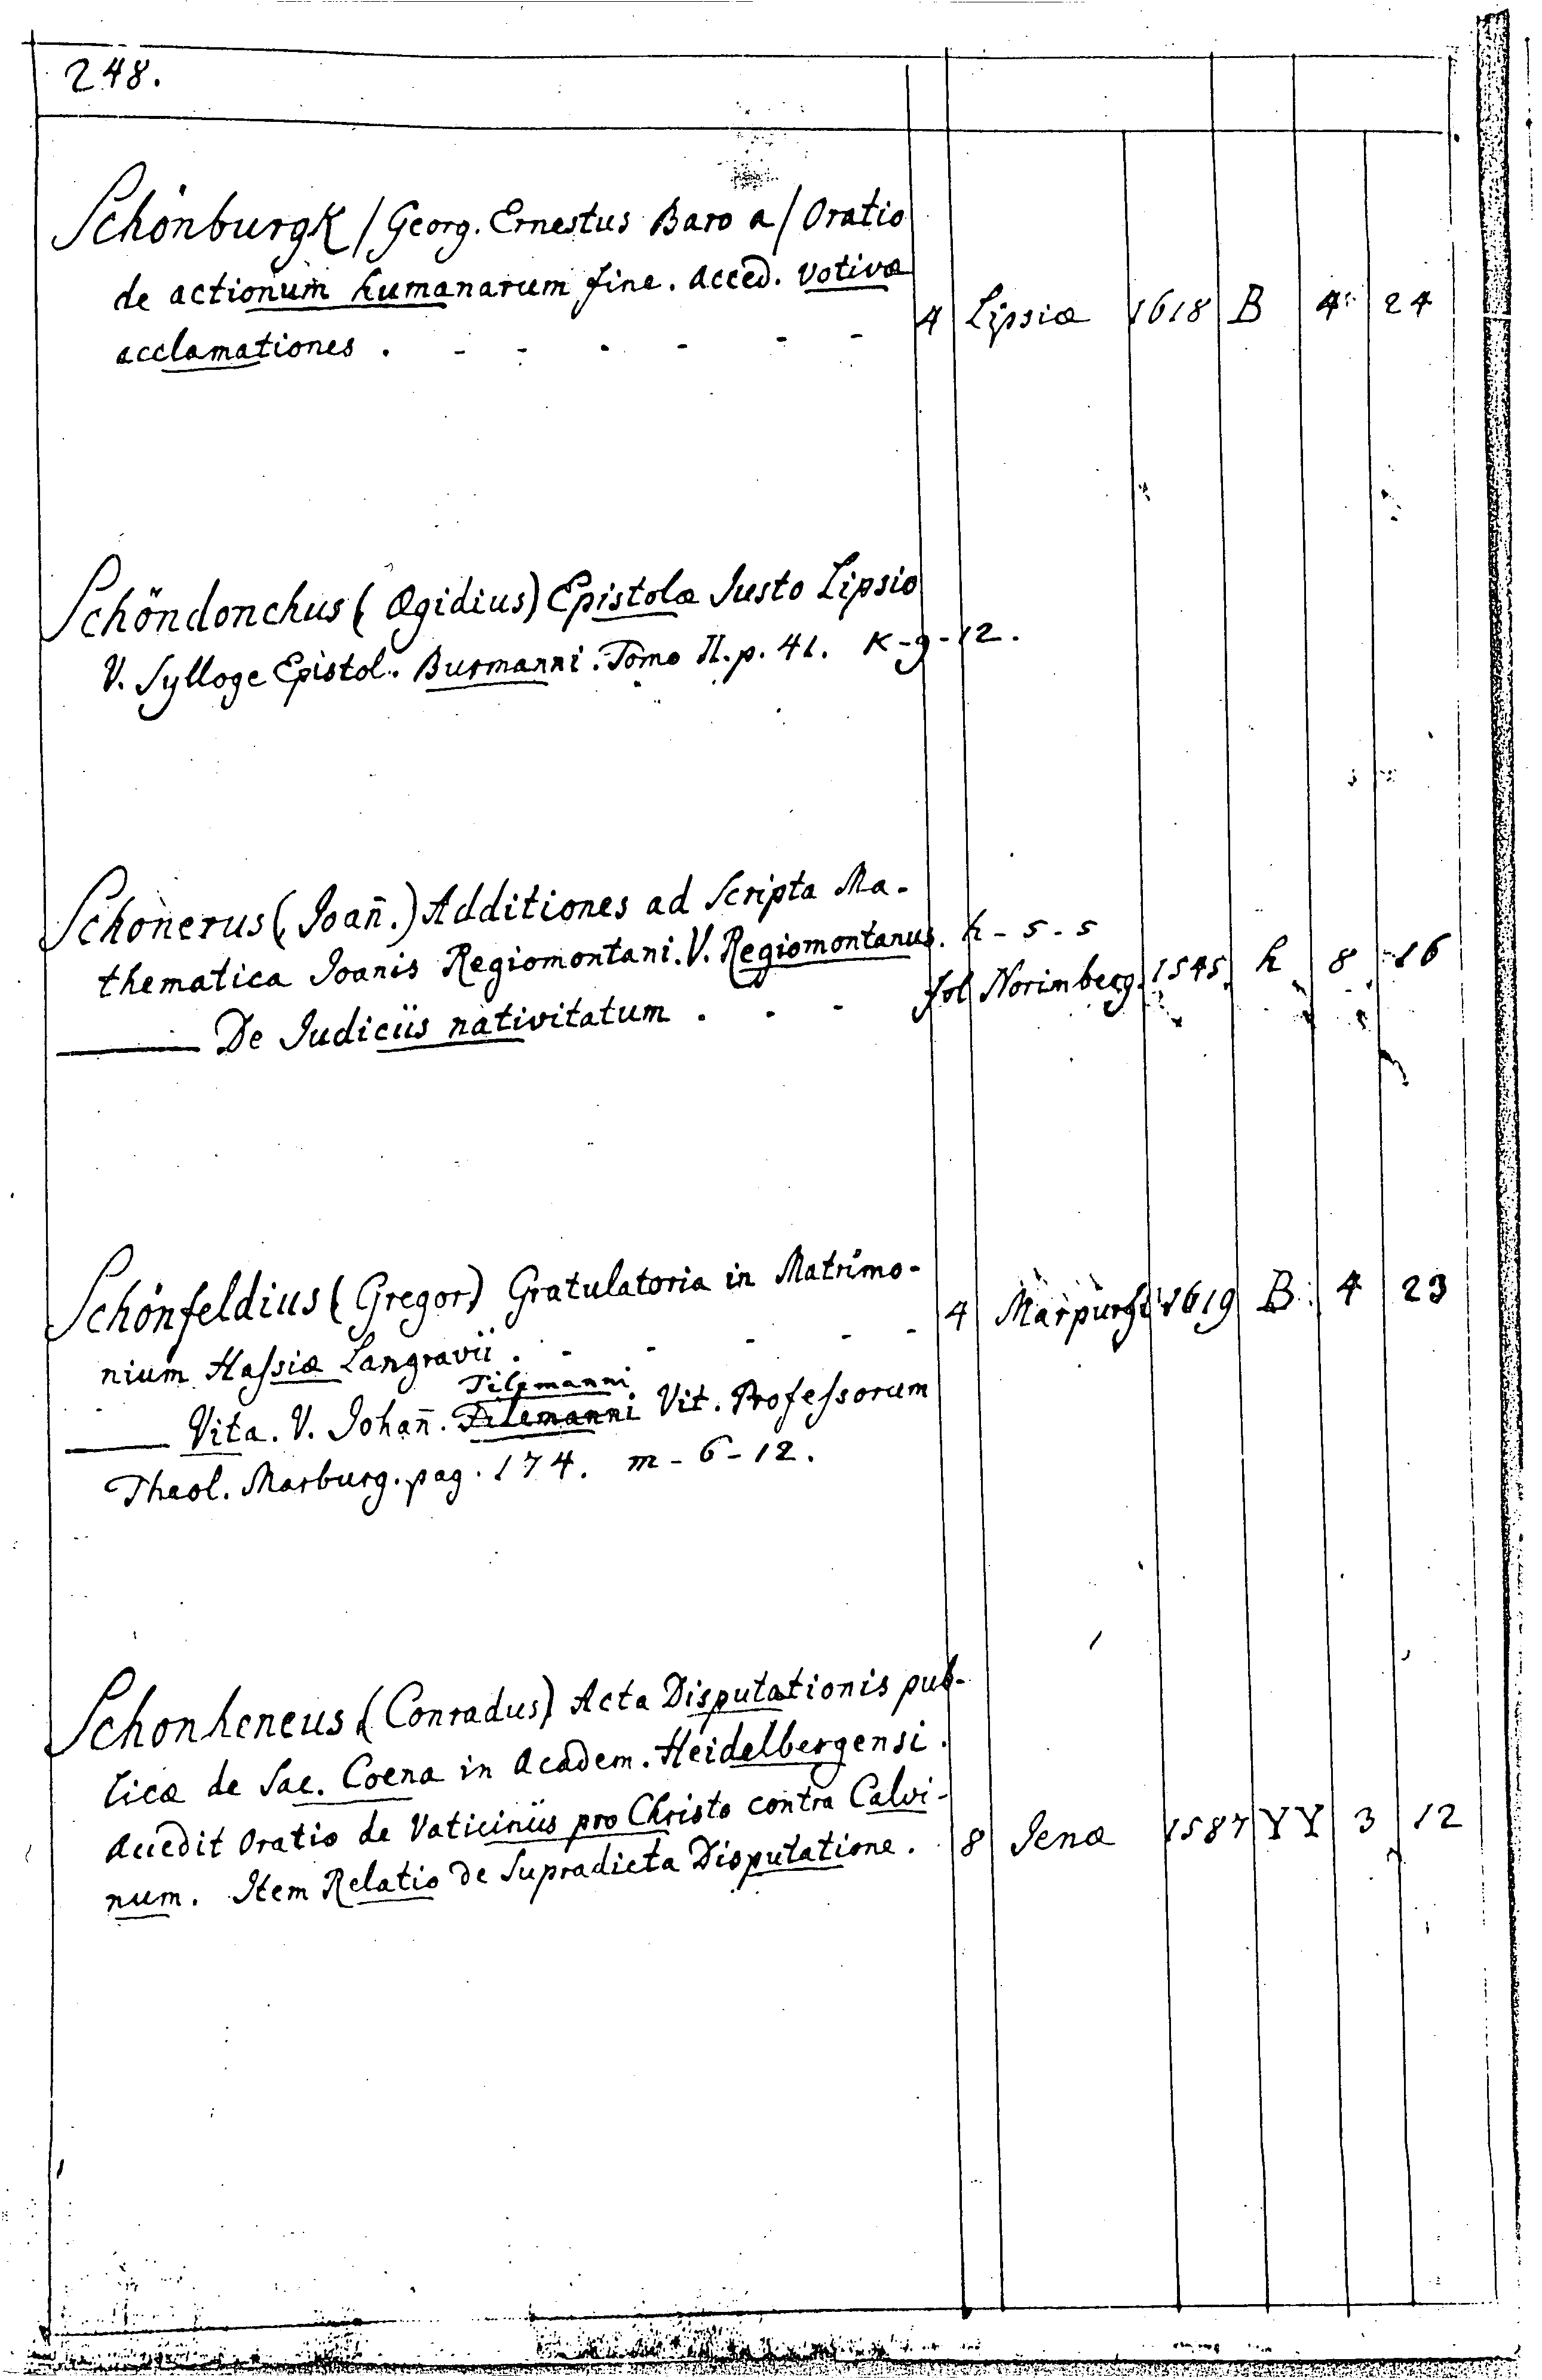 248.
Schönburgk / Georg. Ernestus Baro a / Oratio
de actionum humanarum fine. Acced. votivæ
acclamationes . - - . - - - 4 Lipsiæ 1618 B 4 24
Schöndonchus (Ægidius) Epistolæ Justo Lipsio
V. Sylloge Epistol. Burmanni. Tomo II. p. 41. K-9-12.
Schonerus (Joañ.) Additiones ad Scripta Ma-
thematica Joanis Regiomontani. V. Regiomontanus. h-5-5
—— De Judiciis nativitatum . . - fol Norimberg. 1545. h 8 16
Schönfeldius (Gregor) Gratulatoria in Matrimo-
nium Hassiæ Langravii . - - - - - 4 Marpurgi 1619 B 4 23
Tilemanni
—— Vita. V. Johañ. Tilemanni Vit. Professorum
Theol. Marburg. pag. 174. m-6-12.
Schonheneus (Conradus) Acta Disputationis pub-
licæ de Sac. Coena in Academ. Heidelbergensi.
Accedit Oratio de Vaticiniis pro Christo contra Calvi-
num. Item Relatio de Supradicta Disputatione. 8 Jenæ 1587 YY 3 12